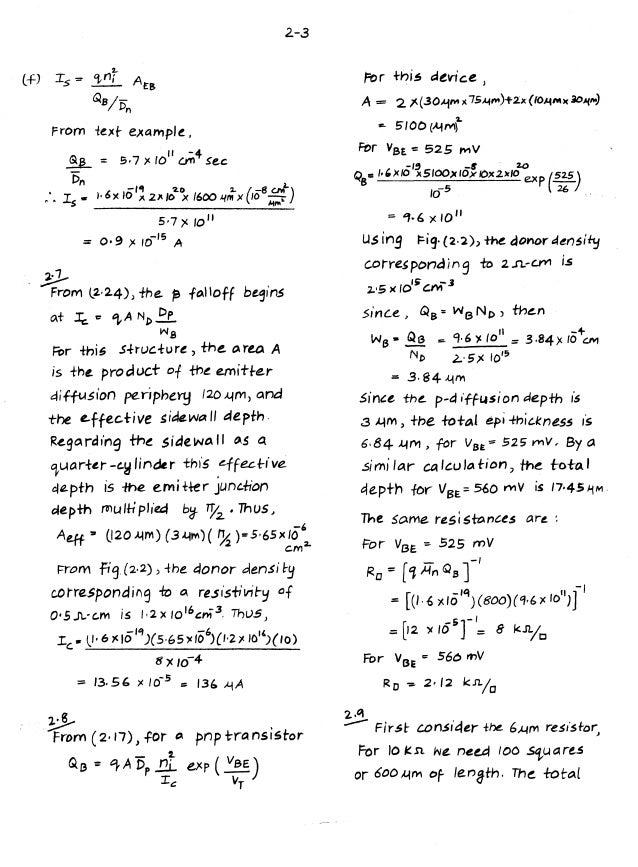 2-3
(f) I_S = q n_i^2 / (Q_B/D̄_n) A_EB
From text example,
Q_B / D̄_n = 5.7 × 10^11 cm^-4 sec
∴ I_S = 1.6×10^-19 × 2×10^20 × 1600 μm^2 × (10^-8 cm^2/μm^2) / 5.7 × 10^11
= 0.9 × 10^-15 A
2.7
From (2.24), the β falloff begins
at I_C = q A N_D D_p / W_B
For this structure, the area A
is the product of the emitter
diffusion periphery 120 μm, and
the effective sidewall depth.
Regarding the sidewall as a
quarter-cylinder this effective
depth is the emitter junction
depth multiplied by π/2. Thus,
A_eff = (120 μm)(3 μm)(π/2) = 5.65×10^-6 cm^2
From Fig.(2.2), the donor density
corresponding to a resistivity of
0.5 Ω-cm is 1.2×10^16 cm^-3. Thus,
I_C = (1.6×10^-19)(5.65×10^-6)(1.2×10^16)(10) / 8×10^-4
= 13.56 × 10^-5 = 136 μA
2.8
From (2.17), for a pnp transistor
Q_B = q A D̄_p n_i^2 / I_C exp (V_BE / V_T)
For this device,
A = 2×(30μm×75μm)+2×(10μm×30μm)
= 5100 (μm)^2
For V_BE = 525 mV
Q_B = 1.6×10^-19 × 5100×10^-8 × 10×2×10^20 / 10^-5 exp (525/26)
= 9.6 × 10^11
Using Fig.(2.2), the donor density
corresponding to 2 Ω-cm is
2.5×10^15 cm^-3
since, Q_B = W_B N_D, then
W_B = Q_B / N_D = 9.6 × 10^11 / 2.5 × 10^15 = 3.84 × 10^-4 cm
= 3.84 μm
Since the p-diffusion depth is
3 μm, the total epi thickness is
6.84 μm, for V_BE = 525 mV. By a
similar calculation, the total
depth for V_BE = 560 mV is 17.45 μm.
The same resistances are :
For V_BE = 525 mV
R_□ = [q μ̄_n Q_B]^-1
= [(1.6 ×10^-19)(800)(9.6 × 10^11)]^-1
= [12 × 10^-5]^-1 = 8 kΩ/□
For V_BE = 560 mV
R_□ = 2.12 kΩ/□
2.9
First consider the 6μm resistor,
For 10 kΩ we need 100 squares
or 600 μm of length. The total